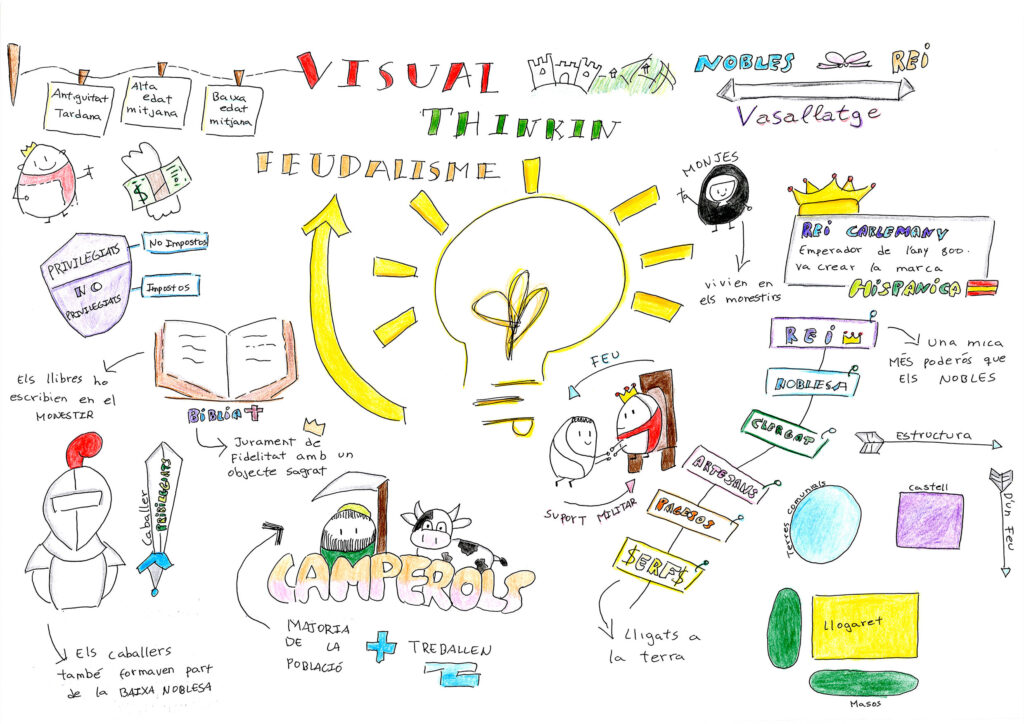 VISUAL
THINKIN
FEUDALISME
Antiguitat
Tardana
Alta
edat
mitjana
Baixa
edat
mitjana
NOBLES
REI
Vasallatge
$
PRIVILEGIATS
NO
PRIVILEGIATS
No Impostos
Impostos
MONJES
vivien en
els monestirs
REI CARLEMANY
Emperador de l'any 800.
va crear la marca
HISPÀNICA
Els llibres ho
escribien en el
MONESTIR
BIBLIA
Jurament de
Fidelitat amb un
objecte sagrat
FEU
SUPORT MILITAR
REI
NOBLESA
CLERGAT
ARTESANS
PAGESOS
$ERF$
Una mica
MÉS poderós que
ELS NOBLES
Lligats a
la terra
Caballer
PRIVILEGIATS
Els caballers
també formaven part
de la BAIXA NOBLESA
CAMPEROLS
MAJORIA
DE LA
POBLACIÓ
TREBALLEN
ESTRUCTURA
D'un Feu
Terres comunals
Castell
Llogaret
Masos